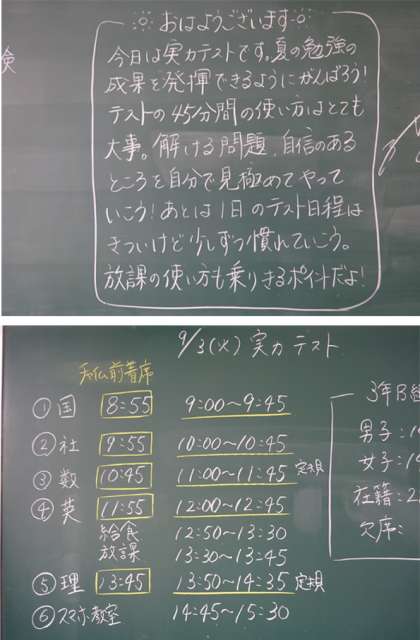 おはようございます
今日は実力テストです。夏の勉強の
成果を発揮できるようにがんばろう!
テストの45分間の使い方はとても
大事。解ける問題、自信のある
ところを自分で見極めてやって
いこう!あとは1日のテスト日程は
きついけど少しずつ慣れていこう。
放課の使い方も乗りきるポイントだよ!
9/3(火) 実力テスト
チャイム前着席
①国 8:55 9:00~9:45
②社 9:55 10:00~10:45
③数 10:45 11:00~11:45 定規
④英 11:55 12:00~12:45
給食 12:50~13:30
放課 13:30~13:45
⑤理 13:45 13:50~14:35 定規
⑥スマホ教室 14:45~15:30
3年B組
男子:
女子:
在籍:
欠席: